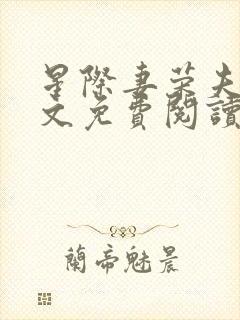 星際妻榮夫
文免費閱讀
蘭帝魅晨